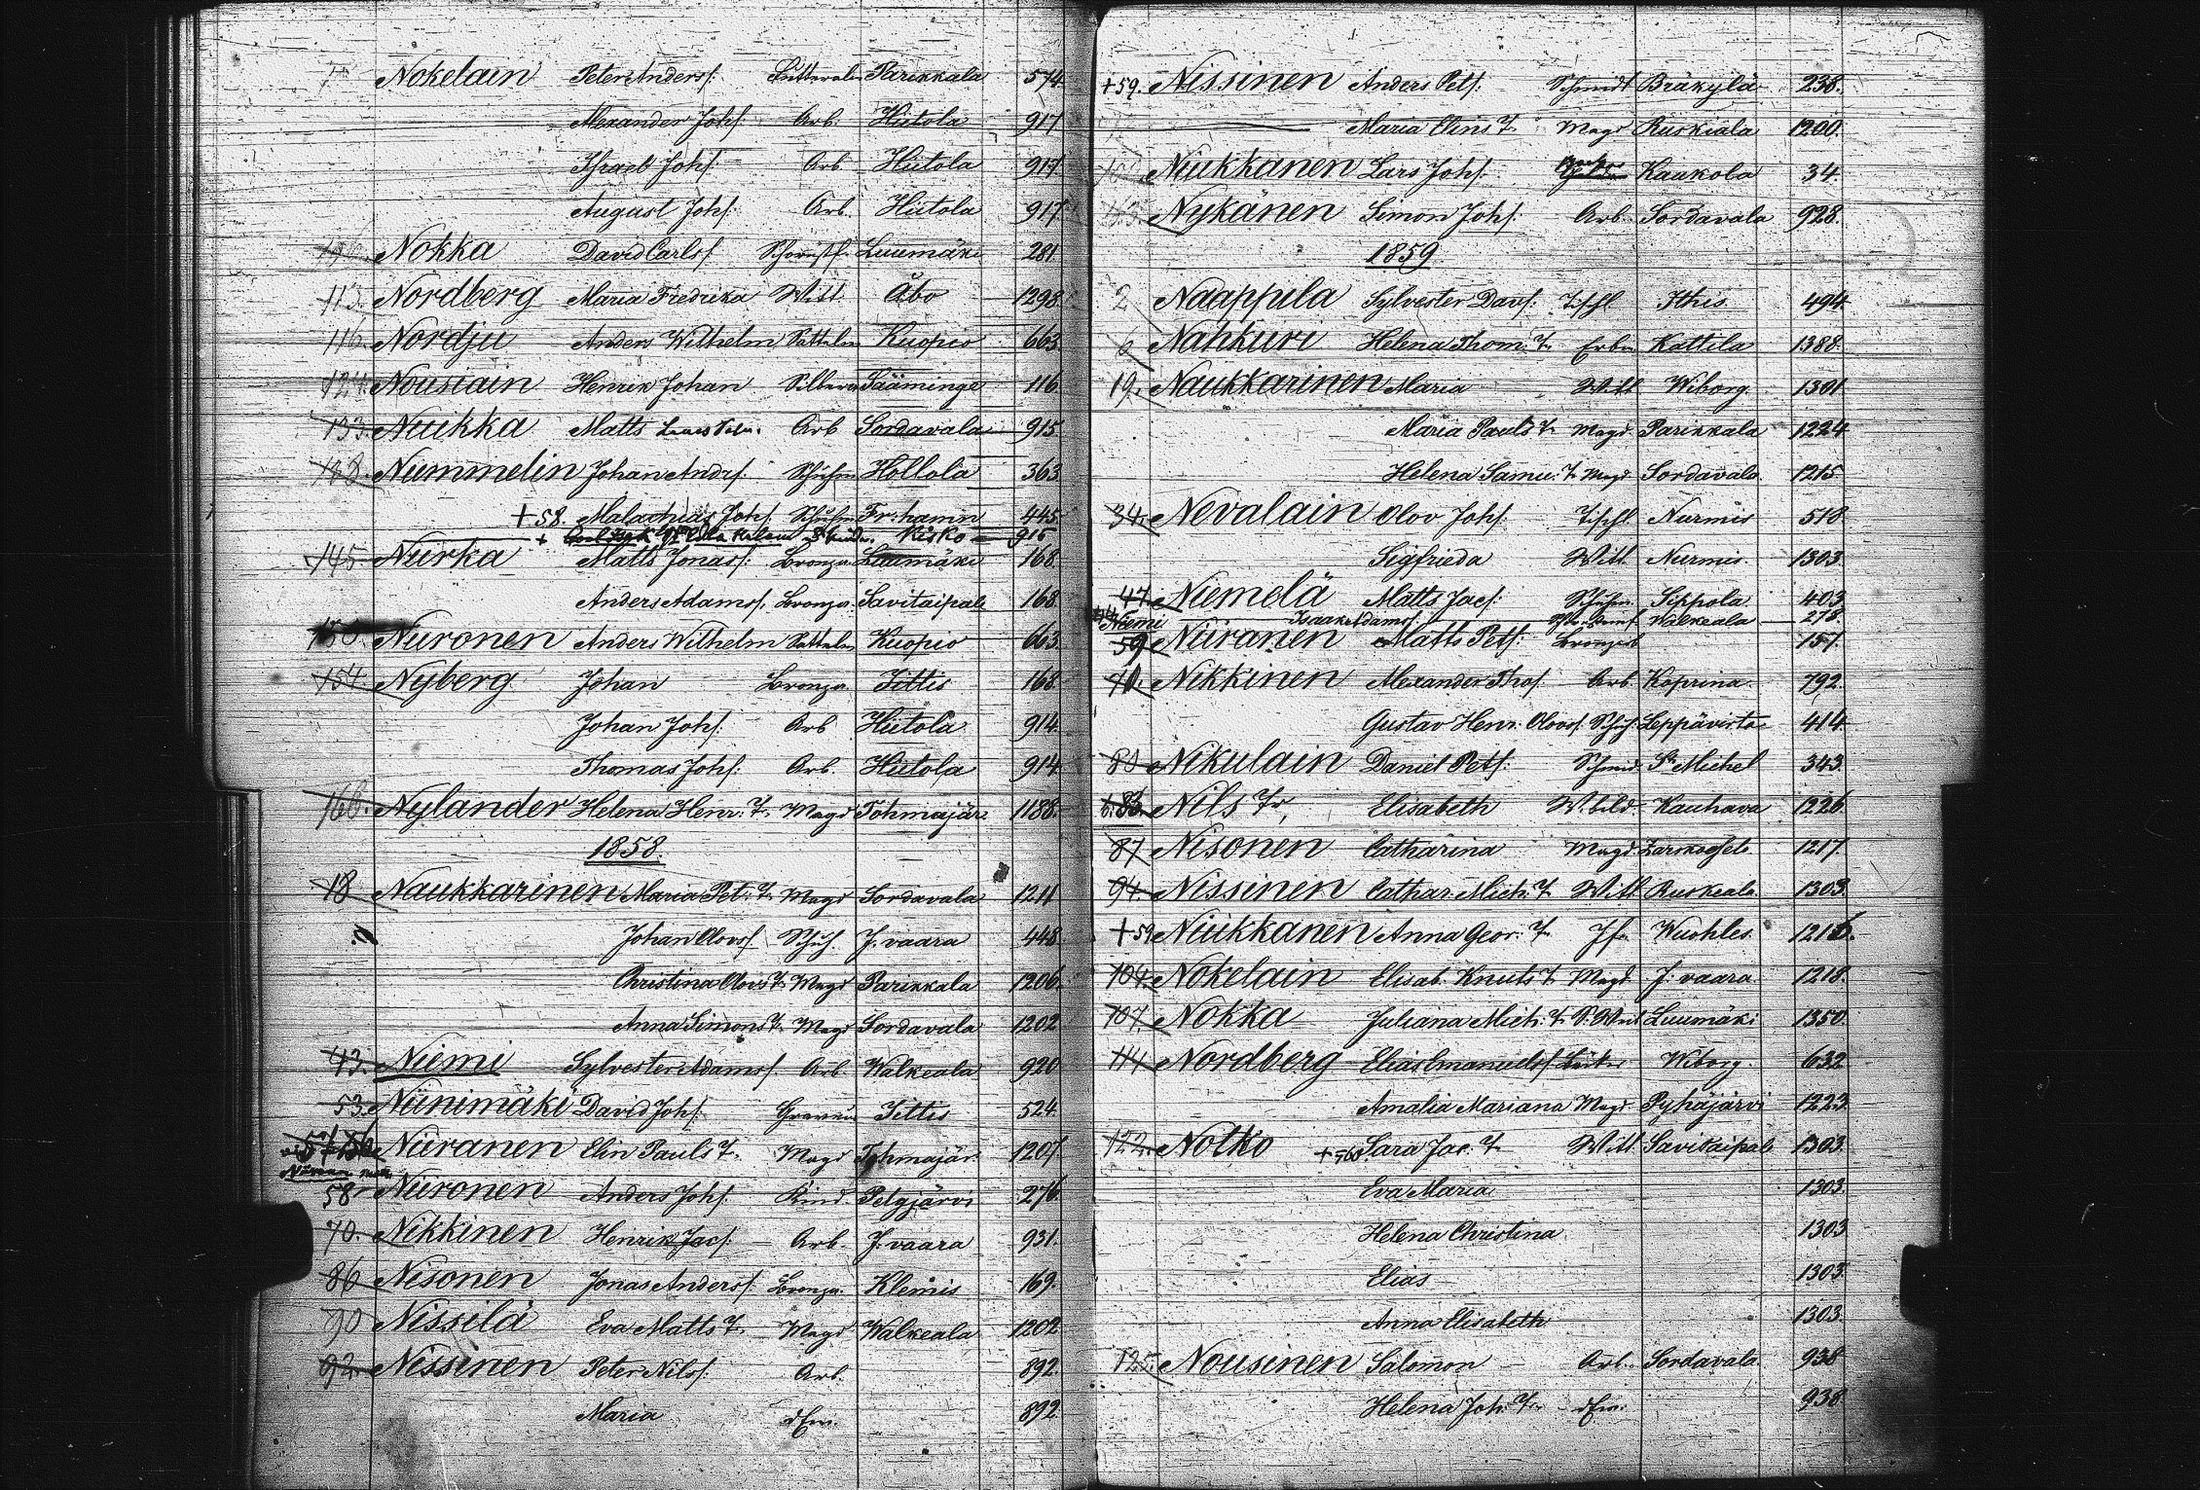 Nokelain Peter Anders f: Futteralm Parikkala 574.
Alexander Joh f. Arb. Hiitola 917
Israel Joh f. Arb. Hiitola 917
August Joh f. Arb. Hiitola 917
Nokka David Carls f. Schornstf. Luumäki 281
113. Nordberg Maria Fredrika Witt. Åbo 1298
116. Nordju Anders Wilhelm Sattelm Kuopio 663
124. Nousiain Henrik Johan Silbera Sääminge 116.
133. Nuikka Matts Arb Sordavala 915
138. Nummelin Johan Andrs f. Schuhm Hollola 363
+58. Malachias Joh f. Schuhm Fr:hamn 445
+ Kisko 915
145 Nurka Matts Jonas f. Bronza. Luumäki 168.
Anders Adams f. Bronza. Savitaipale 168
150. Nuronen Anders Wilhelm Sattelm Kuopio 663.
154 Nyberg Johan Bronza Jittis 168
Johan Joh f. Arb Hiitola 914.
Thomas Joh f. Arb. Hiitola 914
166. Nylander Helena Henr: T. Magd Tohmajär. 1188.
1858.
18 Naukkarinen Maria Pet: T. Magd Sordavala 1211
Johan Olovs f. Schuh. J. vaara 448
Christina Olovs T. Magd Parikkala 1206.
Anna Simons T. Magd Sordavala 1202
43. Niemi Sylvester Adams f. Arb. Walkeala 920
53. Niinimäki David Joh f. Graveur Jittis 524.
Niiranen Elin Pauls T. Magd Tohmajär. 1207.
58. Niironen Anders Joh f. Kind. Pelgjärvi 276.
70. Nikkinen Henrik Jac f: Arb. J. vaara 931.
86 Nisonen Jonas Anders f. Bronza. Klemis 169.
90 Nissilä Eva Matts T. Magd Walkeala 1202
92. Nissinen Peter Nils f. Arb. 892.
Maria d Fra. 892
+59. Nissinen Anders Pet f. Schmidt Bräkylä 238.
Maria Elins T. Magd Ruskiala 1200.
Niukkanen Lars Joh f. Kaukola 34.
Nykänen Simon Joh f. Arb. Sordavala 928.
1859
2 Naappila Sylvester Dav f: Tischl Ithis 494
6 Nahkuri Helena Thom: T. Erbn Kattila 1388.
19. Naukkarinen Maria Witt Wiborg. 1301
Maria Pauls T. Magd Parikkala 1224
Helena Samu: T. Magd Sordavala 1215.
34. Nevalain Olov Joh f. Tischl Nurmis 518
Sigfrieda Witt Nurmis. 1303
47. Niemelä Matts Jac f: Schuhm Sippola 403
Niemi Isaak Adams f. Walkeala 278.
59 Niiranen Matts Pet f. Bronzarb 157.
70. Nikkinen Alexander Tho f. Arb. Koprina 792.
Gustav Henr. Olovs f. Schuh: Leppävirta 414
80 Nikulain Daniel Pet f: Schmid. St. Michel 343.
83. Nils Tr, Elisabeth W. bild. Kauhava 1226.
87 Nisonen Catharina Magd Zarskoeselo 1217
94. Nissinen Cathar. Mich: T. Witt Ruskeala 1303.
+59 Niukkanen Anna Geor: T. Jfr Wuohles 1216.
104. Nokelain Elisab. Knuts T. Magd. J. vaara 1218.
107 Nokka Juliana Mich: T. S. Wit Luumäki 1350
114 Nordberg Elias Emanuels f. Wiborg. 632
Amalia Mariana Magd Pyhäjärvi 1223
122. Notko Sara Jac: T. Witt Savitaipale 1303.
Eva Maria 1303.
Helena Christina 1303
Elias 1303.
Anna Elisabeth 1303.
125. Nousinen Salomon Arb. Sordavala 938
Helena Joh: T. d Fra. 938